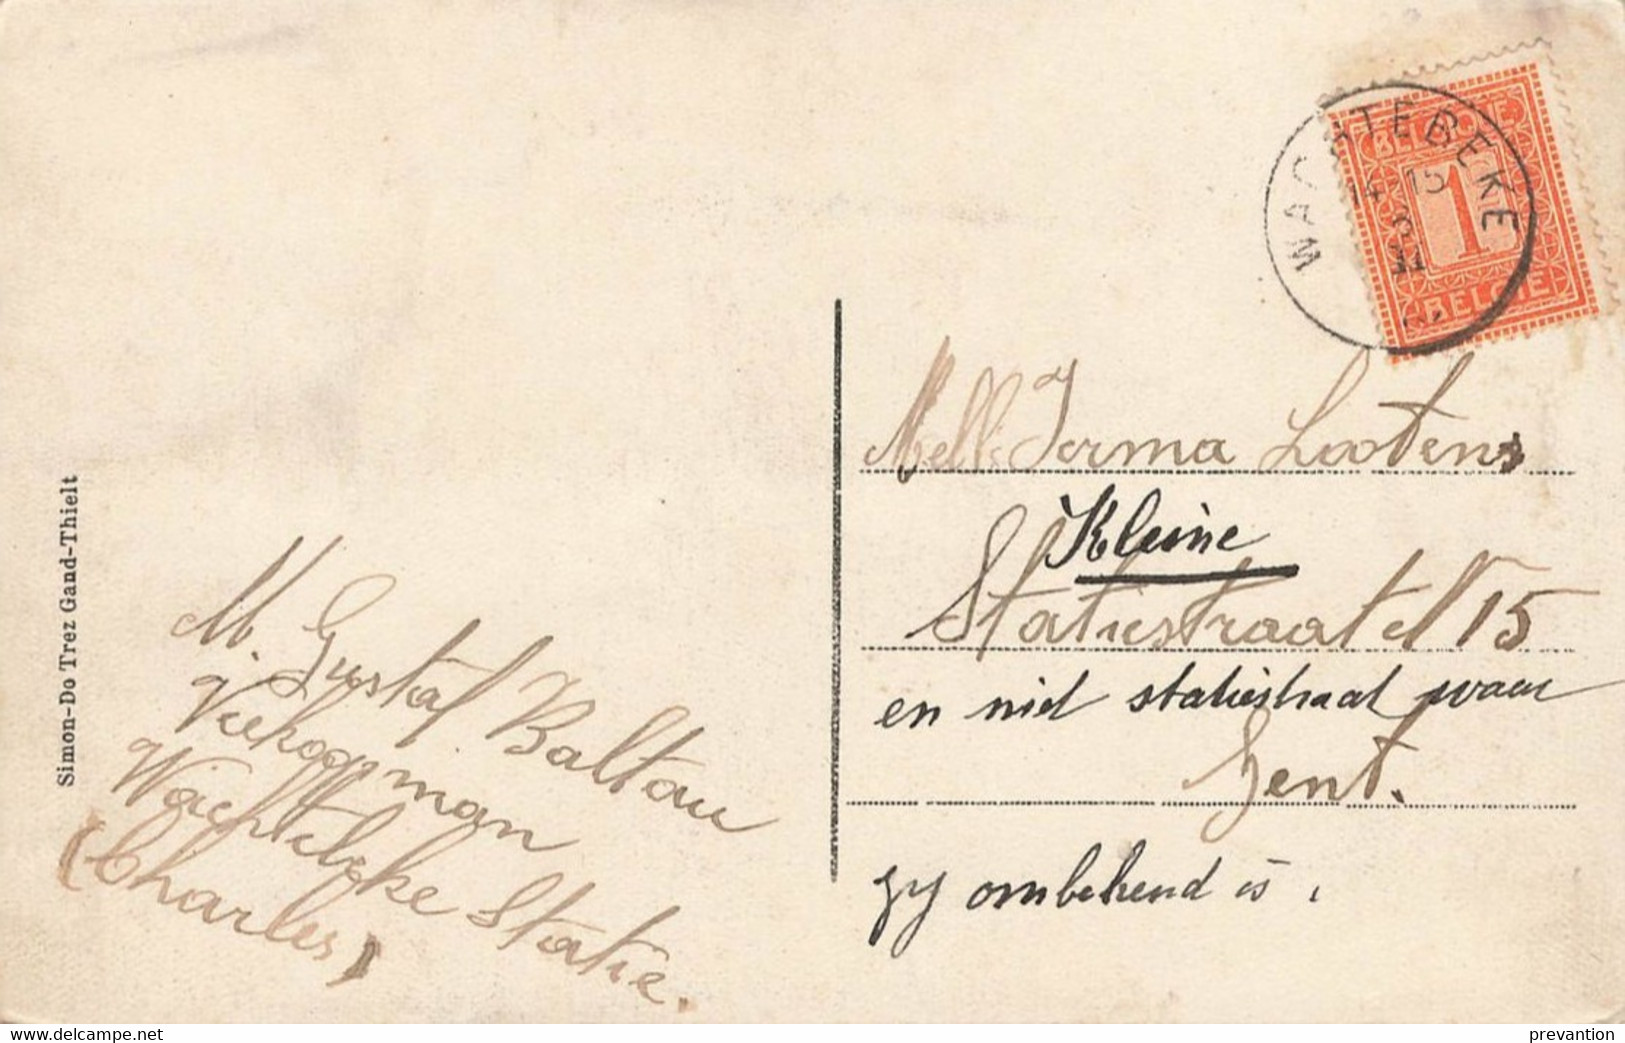 WACHTEBEKE
14-15
BELGIQUE
1
BELGIË
Melle Irma Lootens
Kleine
Statiestraat N 15
en niet statiestraat waar
Gent.
zy ombekend is.
M. Gustaf Baltau
Veekoopman
Wachtebeke Statie.
(Charles)
Simon-Do Trez Gand-Thielt
www.delcampe.net
prevantion